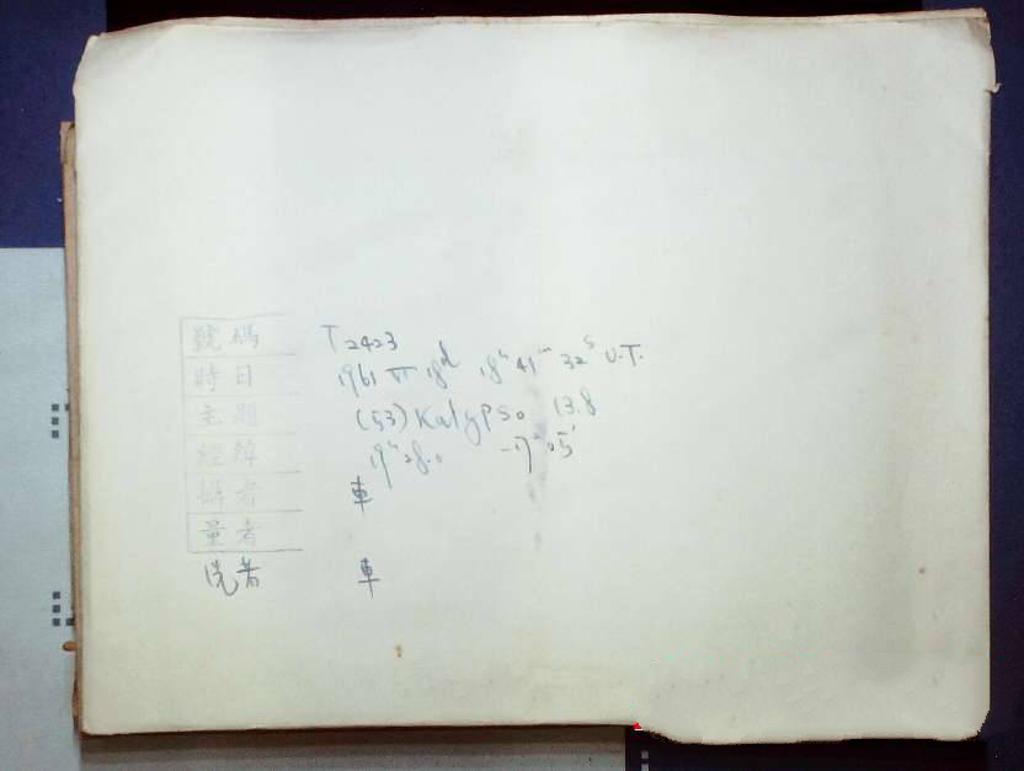 號碼 T2423
時日 1961 VI 18d 18h 41m 32s U.T.
主題 (53) Kalypso 13.8
經緯 19h 28.0 -17° 05'
攝者 車
量者
洗者 車